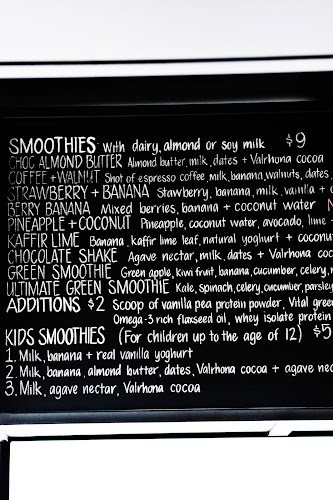 SMOOTHIES with dairy, almond or soy milk $9
CHOC ALMOND BUTTER Almond butter, milk, dates + Valrhona cocoa
COFFEE + WALNUT Shot of espresso coffee, milk, banana, walnuts, dates,
STRAWBERRY + BANANA Stawberry, banana, milk, vanilla + c
BERRY BANANA Mixed berries, banana + coconut water
PINEAPPLE + COCONUT Pineapple, coconut water, avocado, lime +
KAFFIR LIME Banana, kaffir lime leaf, natural yoghurt + coconu
CHOCOLATE SHAKE Agave nectar, milk, dates + Valrhona coc
GREEN SMOOTHIE Green apple, kiwi fruit, banana, cucumber, celery, m
ULTIMATE GREEN SMOOTHIE Kale, spinach, celery, cucumber, parsley
ADDITIONS $2 Scoop of vanilla pea protein powder, Vital green
Omega-3 rich flaxseed oil, whey isolate protein
KIDS SMOOTHIES (For children up to the age of 12) $5
1. Milk, banana + real vanilla yoghurt
2. Milk, banana, almond butter, dates, Valrhona cocoa + agave nec
3. Milk, agave nectar, Valrhona cocoa